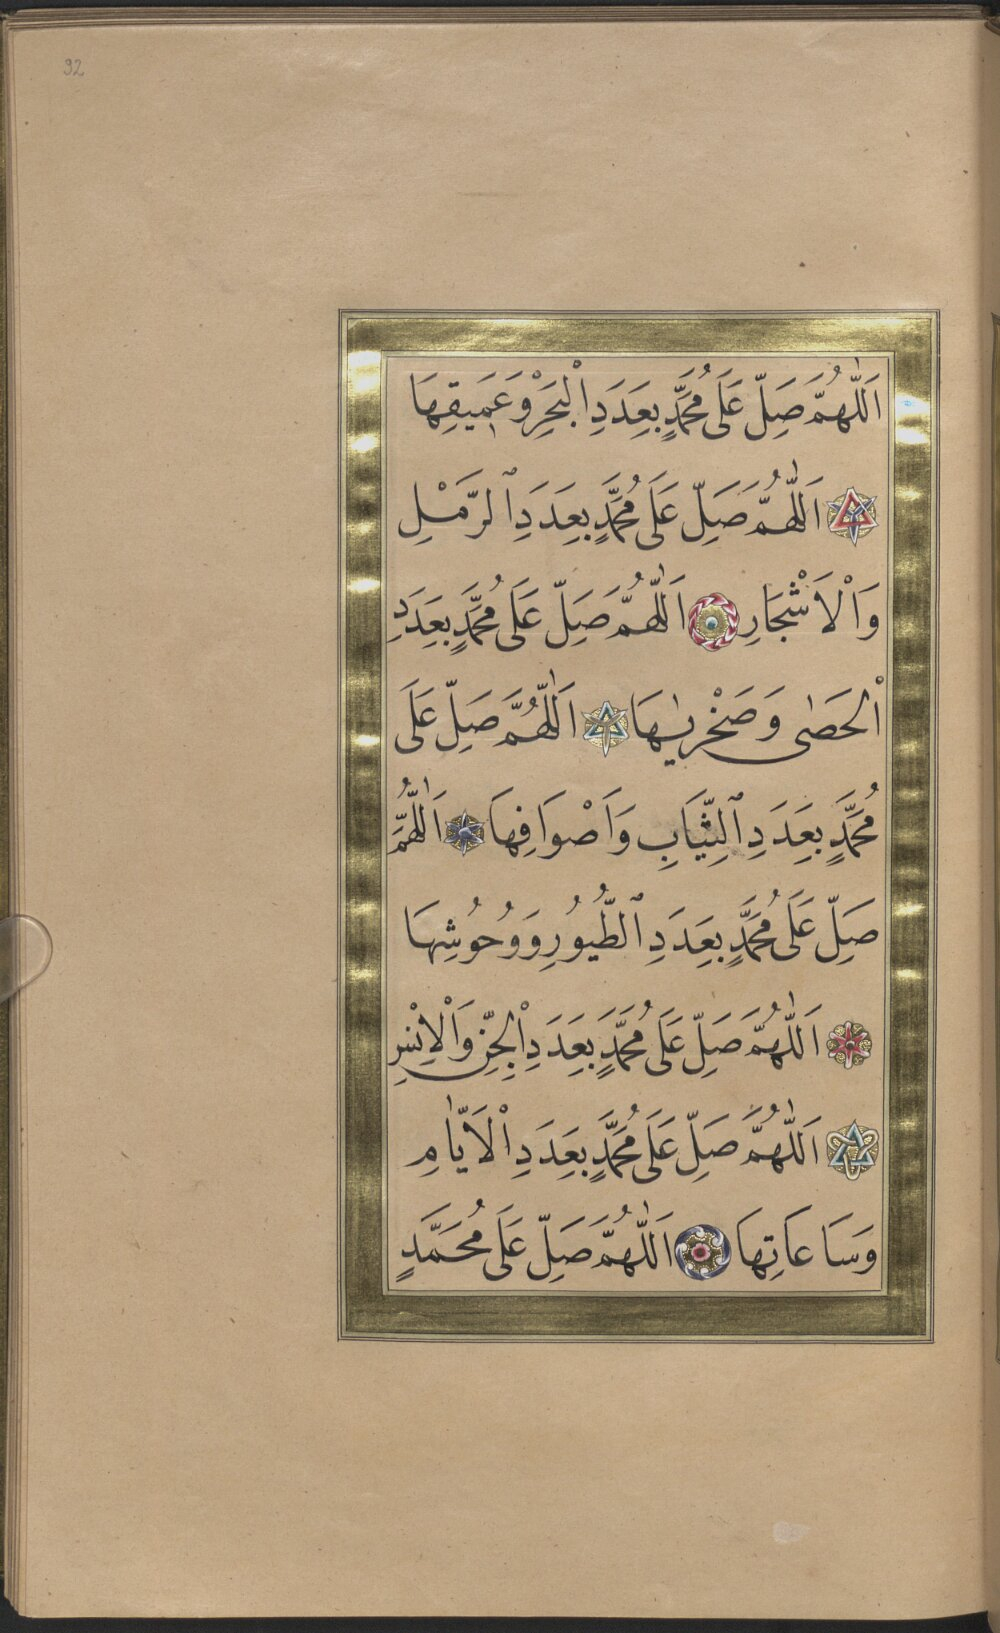 92
اَللّٰهُمَّ صَلِّ عَلَى مُحَمَّدٍ بِعَدَدِ الْبَحْرِ وَعَمِيقِهَا
اَللّٰهُمَّ صَلِّ عَلَى مُحَمَّدٍ بِعَدَدِ الرَّمْلِ
وَالْاَشْجَارِ اَللّٰهُمَّ صَلِّ عَلَى مُحَمَّدٍ بِعَدَدِ
الْحَصٰى وَصَخْرِيٰهَا اَللّٰهُمَّ صَلِّ عَلَى
مُحَمَّدٍ بِعَدَدِ الثِّيَابِ وَاَصْوَافِهَا اَللّٰهُمَّ
صَلِّ عَلَى مُحَمَّدٍ بِعَدَدِ الطُّيُورِ وَوُحُوشِهَا
اَللّٰهُمَّ صَلِّ عَلَى مُحَمَّدٍ بِعَدَدِ الْجِنِّ وَالْاِنْسِ
اَللّٰهُمَّ صَلِّ عَلَى مُحَمَّدٍ بِعَدَدِ الْاَيَّامِ
وَسَاعَاتِهَا اَللّٰهُمَّ صَلِّ عَلَى مُحَمَّدٍ